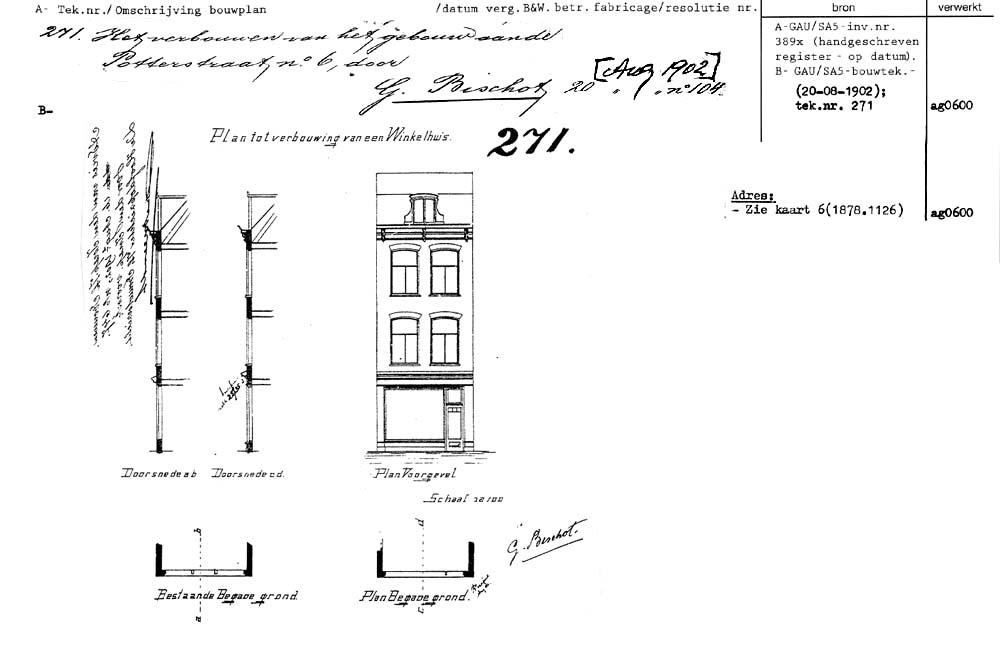 A- Tek.nr./ Omschrijving bouwplan /datum verg.B&W. betr. fabricage/resolutie nr. bron verwerkt
271. Het verbouwen van het gebouw aan de
Potterstraat n° 6, door
G. Bischot 20 " " n° 104.
[Aug 1902]
A-GAU/SA5-inv.nr.
389x (handgeschreven
register - op datum).
B- GAU/SA5-bouwtek.-
(20-08-1902);
tek.nr. 271 ag0600
B-
Plan tot verbouwing van een Winkelhuis.
271.
Adres:
- Zie kaart 6(1878.1126) ag0600
Doorsnede a b Doorsnede c d. Plan Voorgevel.
Schaal
G. Bischot.
Bestaande Begane grond. Plan Begane grond.